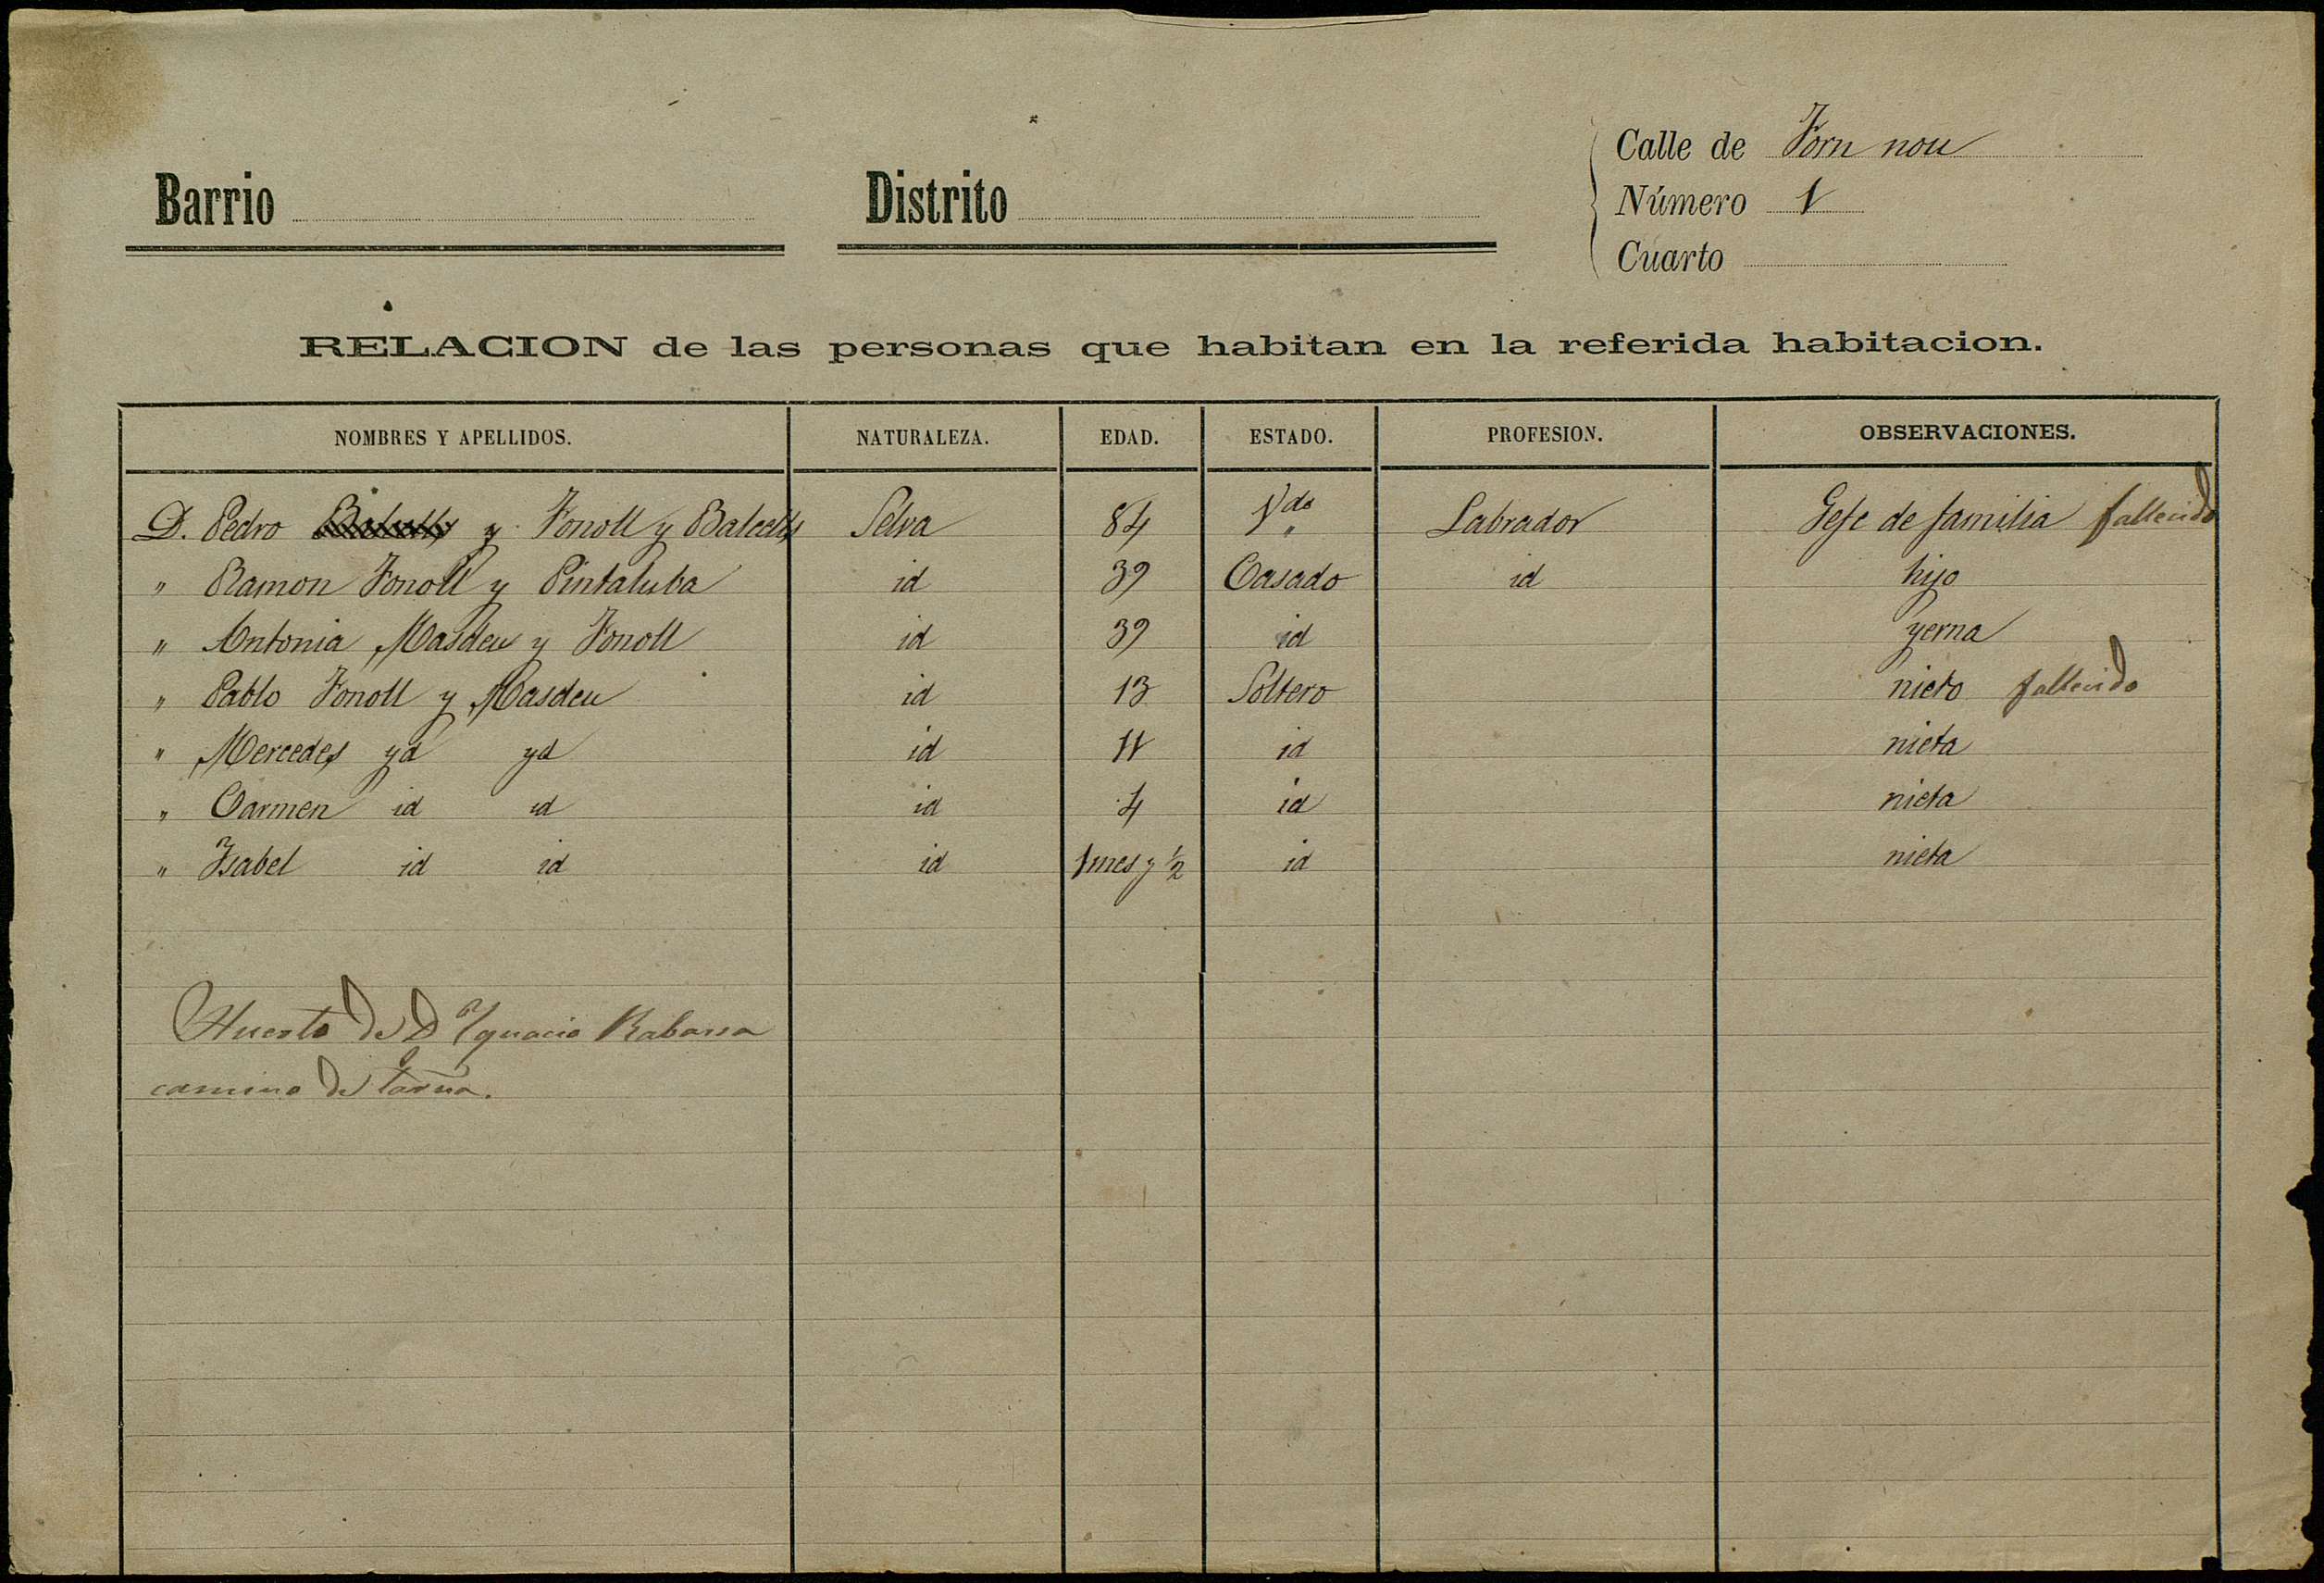 Calle de Forn nou
Barrio Distrito Número 1
Cuarto
RELACION de las personas que habitan en la referida habitacion.
NOMBRES Y APELLIDOS. NATURALEZA. EDAD. ESTADO. PROFESION. OBSERVACIONES.
D. Pedro y Fonoll y Balcells Selva 84 Vdo " Labrador Gefe de familia fallecido
" Ramon Fonoll y Pintaluba id 39 Casado id hijo
" Antonia Masdeu y Fonoll id 39 id yerna
" Pablo Fonoll y Masdeu id 13 Soltero nieto fallecido
" Mercedes yd yd id 11 id nieta
" Carmen id id id 4 id nieta
" Isabel id id id 1 mes y ½ id nieta
Huerto de D. Ignacio Rabassa
camino de